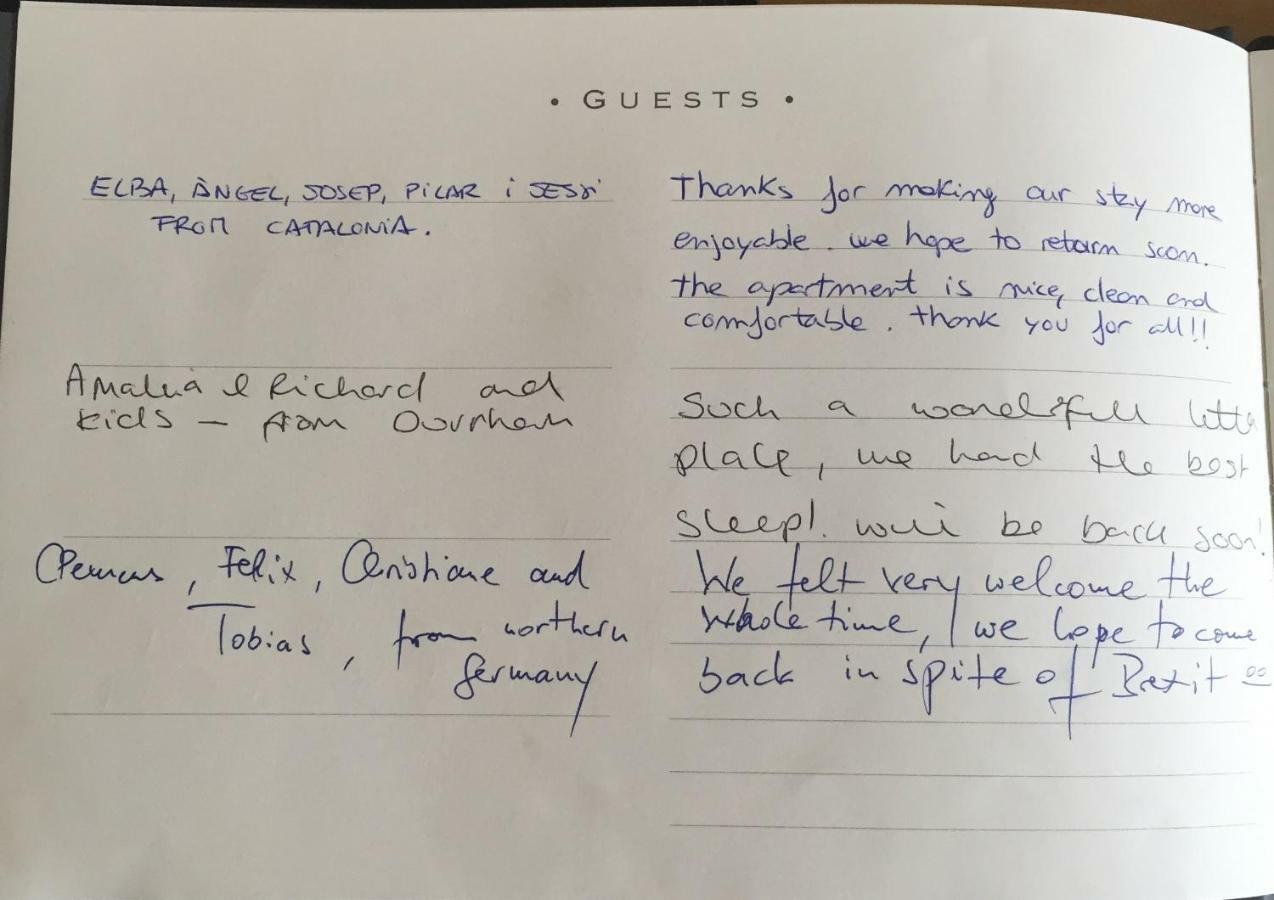 • GUESTS •
ELBA, ÀNGEL, JOSEP, PILAR i JESSI
FROM CATALONIA.
Thanks for making our stay more
enjoyable. we hope to return soon.
the apartment is nice, clean and
comfortable. thank you for all!!
Amalia & Richard and
kids – from Durham
Such a wonderfull little
place, we had the best
sleep! will be back soon!
Clemens, Felix, Christiane and
Tobias, from northern
Germany
We felt very welcome the
whole time, we hope to come
back in spite of Brexit